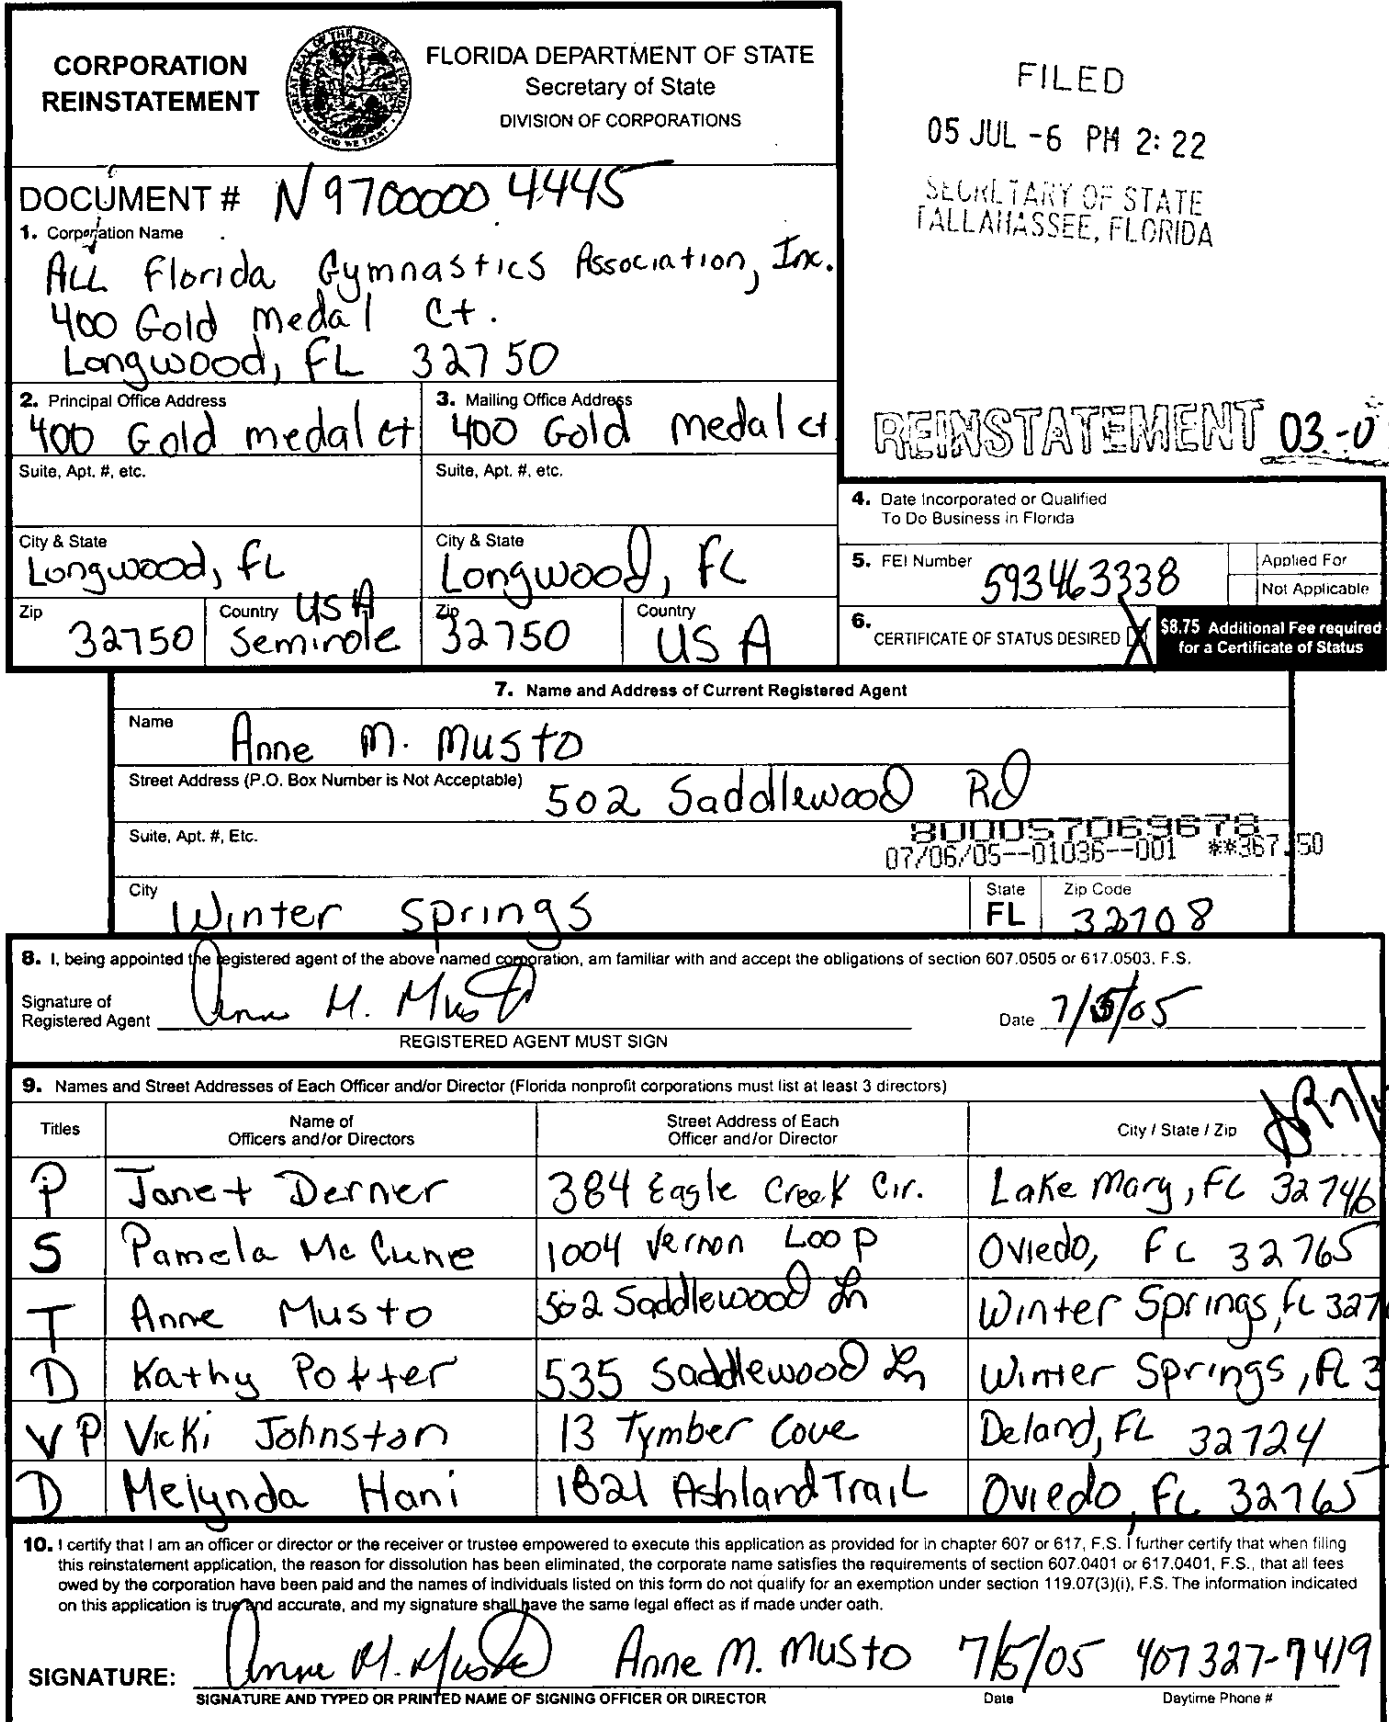 CORPORATION
REINSTATEMENT
GREAT SEAL OF THE STATE OF FLORIDA
IN GOD WE TRUST
FLORIDA DEPARTMENT OF STATE
Secretary of State
DIVISION OF CORPORATIONS
FILED
05 JUL -6 PM 2:22
SECRETARY OF STATE
TALLAHASSEE, FLORIDA
DOCUMENT # N97000004445
1. Corporation Name
ALL Florida Gymnastics Association, Inc.
400 Gold medal Ct.
Longwood, FL 32750
REINSTATEMENT 03-0
2. Principal Office Address
400 Gold medal ct
3. Mailing Office Address
400 Gold medal ct
Suite, Apt. #, etc.
Suite, Apt. #, etc.
City & State
Longwood, FL
City & State
Longwood, FL
Zip
32750
Country USA
Seminole
Zip
32750
Country
USA
4. Date Incorporated or Qualified
To Do Business in Florida
5. FEI Number 593463338
Applied For
Not Applicable
6. CERTIFICATE OF STATUS DESIRED X
$8.75 Additional Fee required
for a Certificate of Status
7. Name and Address of Current Registered Agent
Name
Anne M. Musto
Street Address (P.O. Box Number is Not Acceptable)
502 Saddlewood Rd
Suite, Apt. #, Etc.
800057069678
07/06/05--01036--001 **367.50
City
Winter Springs
State
FL
Zip Code
32708
8. I, being appointed the registered agent of the above named corporation, am familiar with and accept the obligations of section 607.0505 or 617.0503, F.S.
Signature of
Registered Agent Anne M. Musto
Date 7/5/05
REGISTERED AGENT MUST SIGN
9. Names and Street Addresses of Each Officer and/or Director (Florida nonprofit corporations must list at least 3 directors)
Titles
Name of
Officers and/or Directors
Street Address of Each
Officer and/or Director
City / State / Zip
P Janet Derner 384 Eagle Creek Cir. Lake Mary, FL 32746
S Pamela McCune 1004 Vernon Loop Oviedo, FL 32765
T Anne Musto 502 Saddlewood Ln Winter Springs, FL 327
D Kathy Potter 535 Saddlewood Ln Winter Springs, FL 3
VP Vicki Johnston 13 Tymber Cove Deland, FL 32724
D Melynda Hani 1821 Ashland Trail Oviedo, FL 32765
10. I certify that I am an officer or director or the receiver or trustee empowered to execute this application as provided for in chapter 607 or 617, F.S. I further certify that when filing
this reinstatement application, the reason for dissolution has been eliminated, the corporate name satisfies the requirements of section 607.0401 or 617.0401, F.S., that all fees
owed by the corporation have been paid and the names of individuals listed on this form do not qualify for an exemption under section 119.07(3)(i), F.S. The information indicated
on this application is true and accurate, and my signature shall have the same legal effect as if made under oath.
SIGNATURE: Anne M. Musto Anne M. Musto 7/5/05 407 327-7419
SIGNATURE AND TYPED OR PRINTED NAME OF SIGNING OFFICER OR DIRECTOR
Date
Daytime Phone #